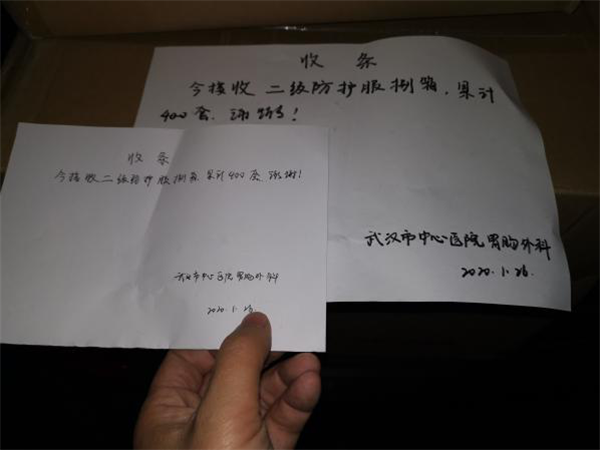 收 条
今接收 二级防护服捌箱,累计
400套,谢谢!
武汉市中心医院胃胸外科
2020.1.26.
收 条
今接收二级防护服捌箱,累计400套,谢谢!
武汉市中心医院胃胸外科
2020.1.26.